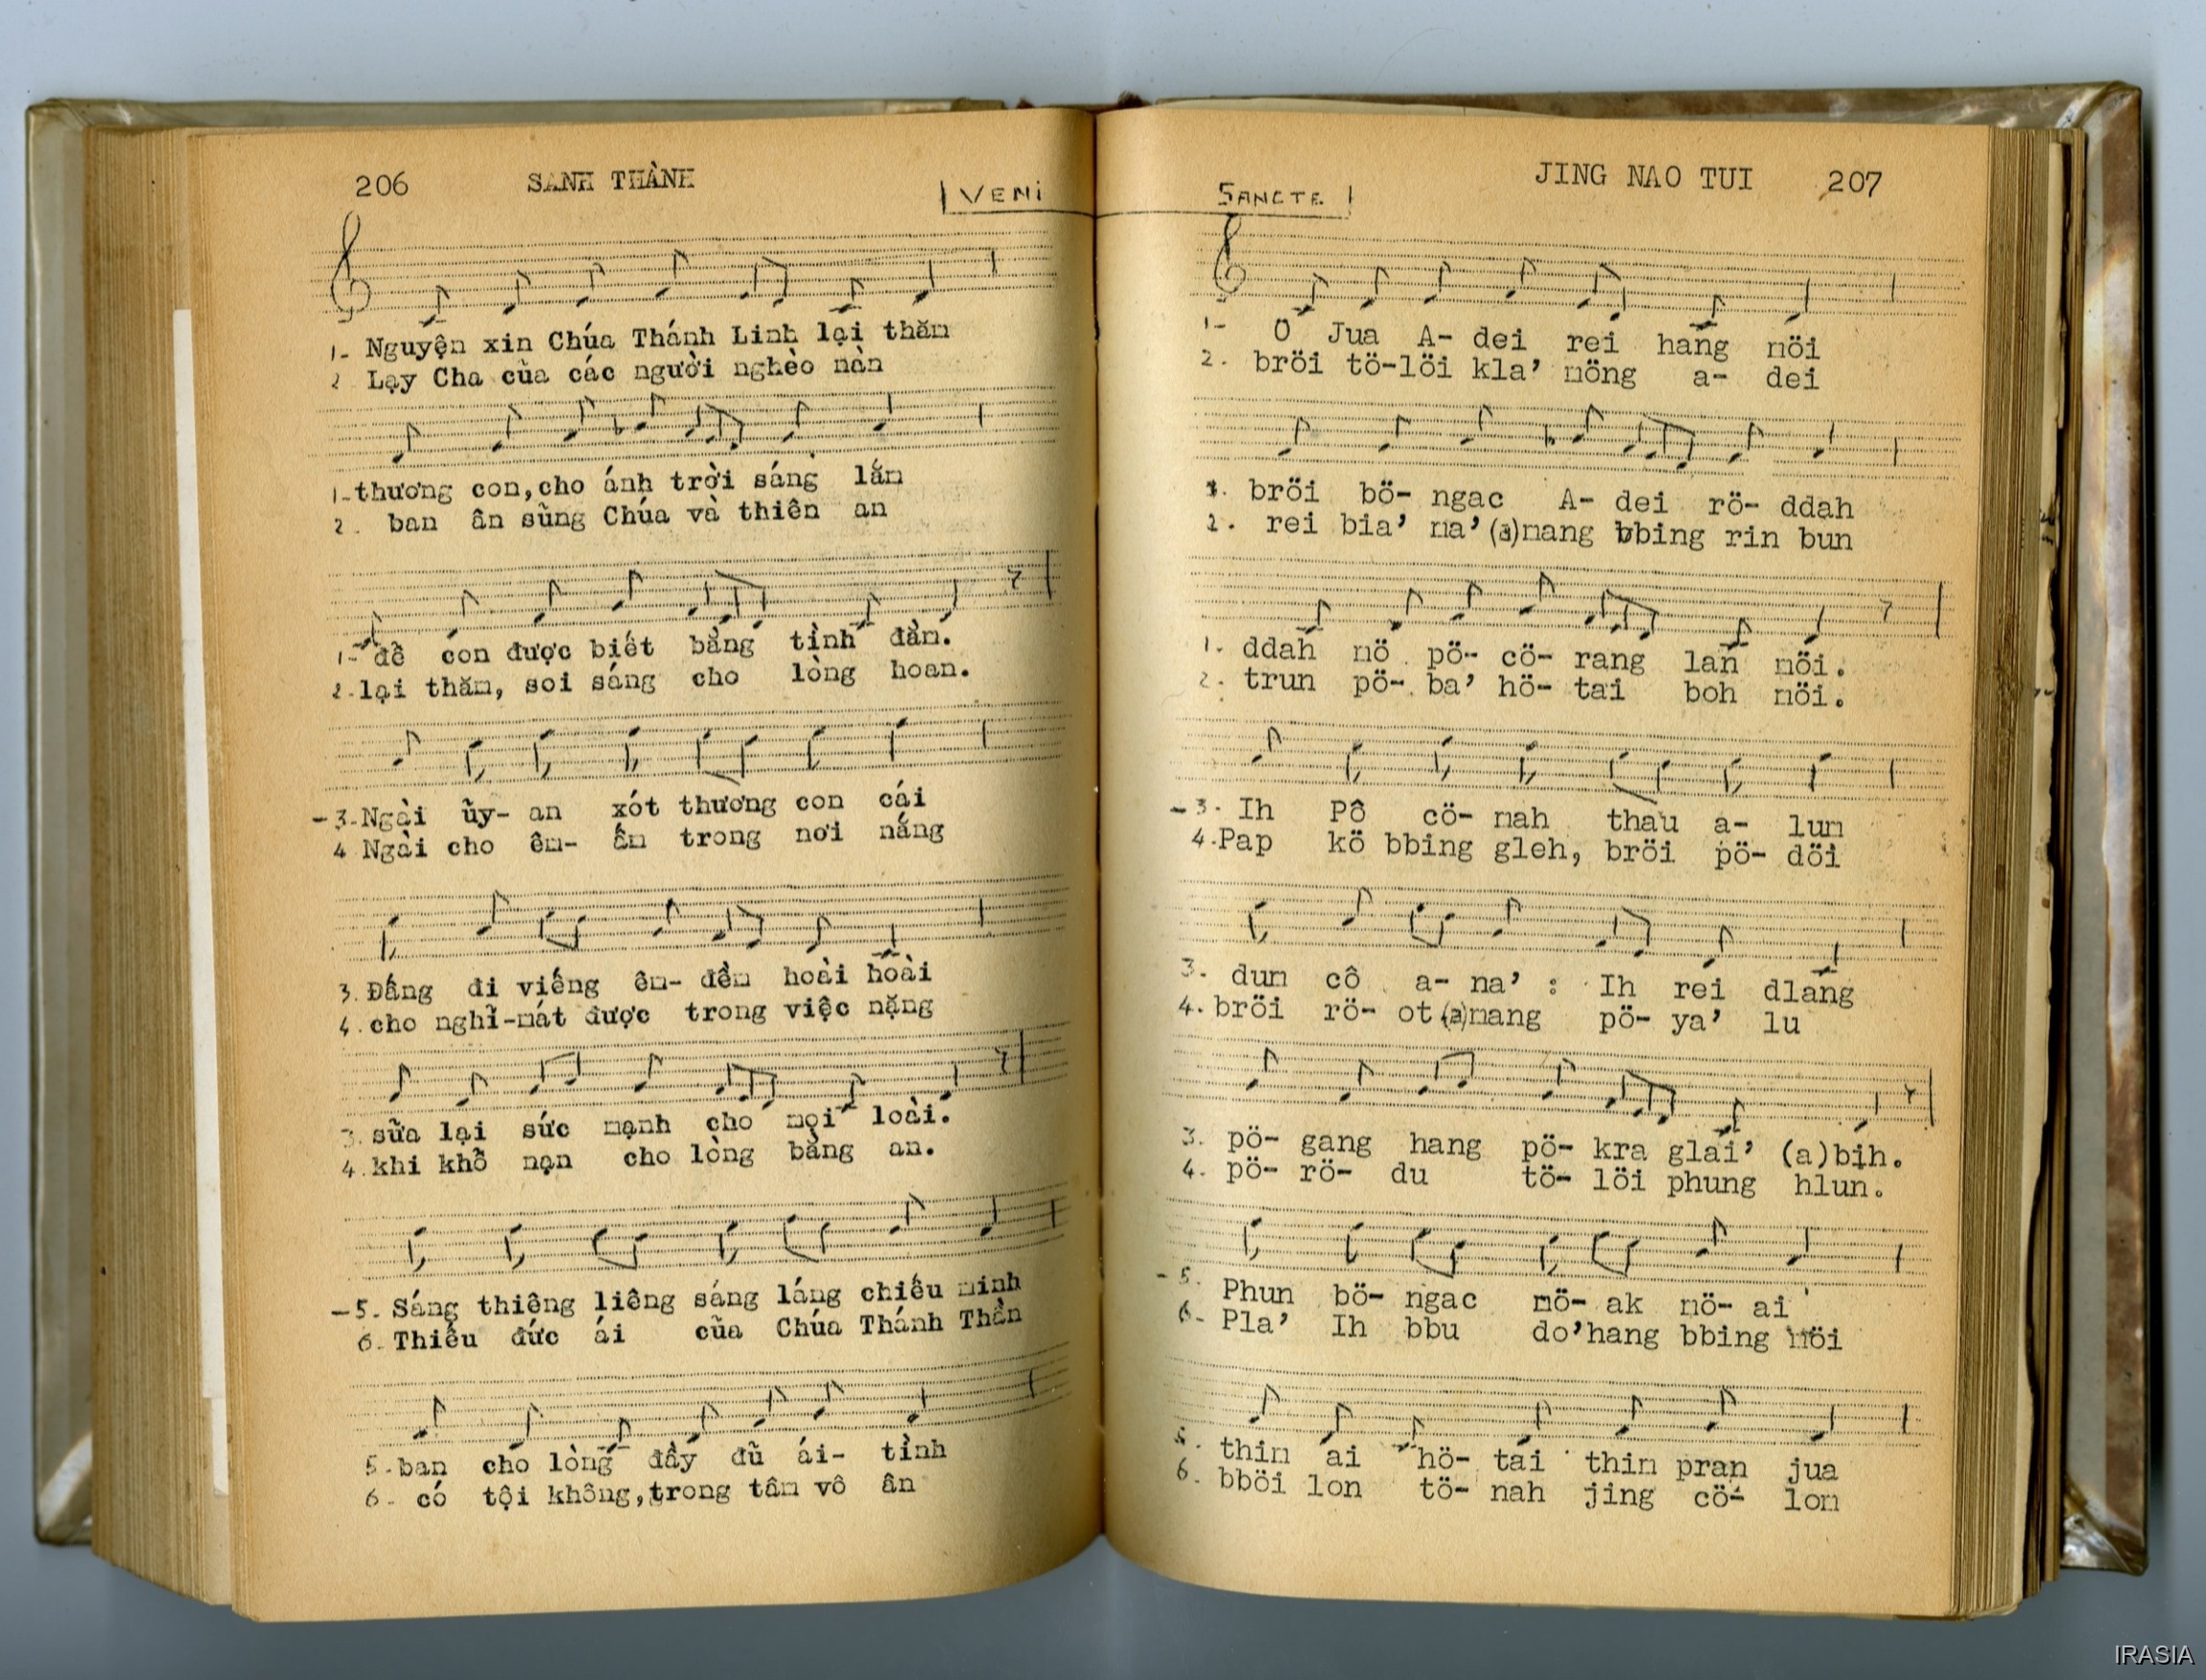 206 SANH THÀNH
VENI
1- Nguyện xin Chúa Thánh Linh lại thăm
2 Lạy Cha của các người nghèo nàn
1-thương con,cho ánh trời sáng lắm
2. ban ân sũng Chúa và thiên an
1- để con được biết bằng tình đầm.
2.lại thăm, soi sáng cho lòng hoan.
-3-Ngài ũy- an xót thương con cái
4 Ngài cho êm- ấm trong nơi nắng
3.Đấng đi viếng êm- đềm hoài hoài
4.cho nghỉ-mát được trong việc nặng
3.sữa lại sức mạnh cho mọi loài.
4.khi khổ nạn cho lòng bằng an.
-5. Sáng thiêng liêng sáng láng chiếu minh
6. Thiếu đức ái cũa Chúa Thánh Thần
5.ban cho lòng đầy đũ ái- tình
6- có tội không,trong tâm vô ân
SANCTE
JING NAO TUI 207
1- O Jua A- dei rei hang möi
2. bröi tö-löi kla' möng a- dei
1. bröi bö- ngac A- dei rö- ddah
2. rei bia' ma'(a)nang bbing rin bun
1. ddah mö pö- cö- rang lam möi.
2. trun pö- ba' hö- tai boh möi.
-3- Ih Pô cö- nah thau a- lum
4.Pap kö bbing gleh, bröi pö- döi
3. dum cô a- na' : Ih rei dlang
4.bröi rö- ot(a)nang pö- ya' lu
3. pö- gang hang pö- kra glai' (a)bih.
4. pö- rö- du tö- löi phung hlun.
-5. Phun bö- ngac mö- ak mö- ai
6- Pla' Ih bbu do'hang bbing möi
5. thim ai hö- tai thim pran jua
6. bböi lon tö- nah jing cö- lom
IRASIA